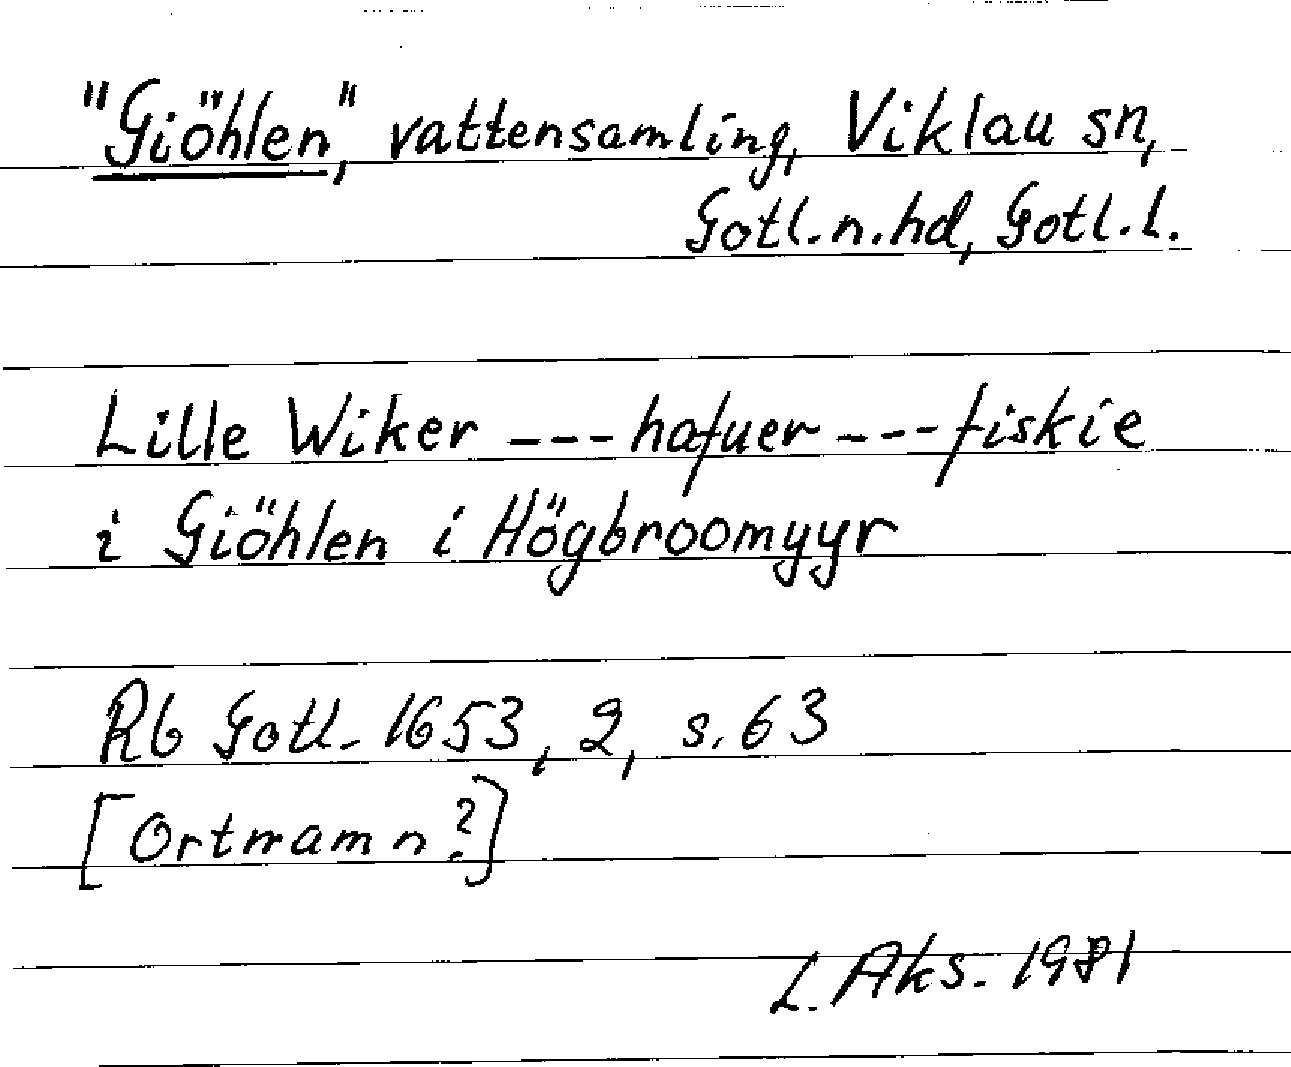 "Giöhlen", vattensamling, Viklau sn,
Gotl. n. hd, Gotl. l.
Lille Wiker --- hafuer --- fiskie
i Giöhlen i Högbroomyyr
Rb Gotl. 1653, 2, s. 63
[Ortnamn?]
L. Aks. 1981